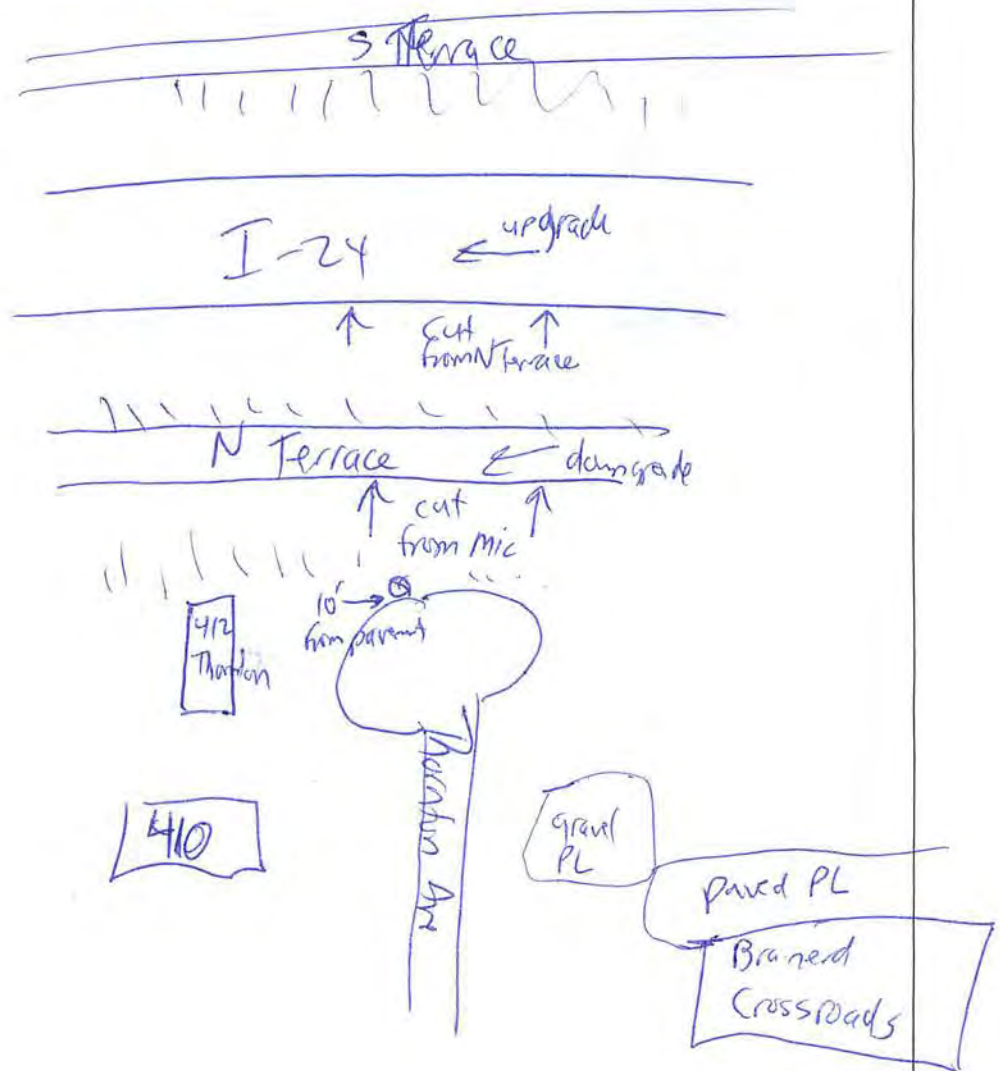 S Terrace
I-24
upgrade
cut
from N Terrace
N Terrace
downgrade
cut
from mic
10'
from pavemnt
412
Thornton
Thornton Ave
410
gravel
PL
paved PL
Brainerd
Crossroads